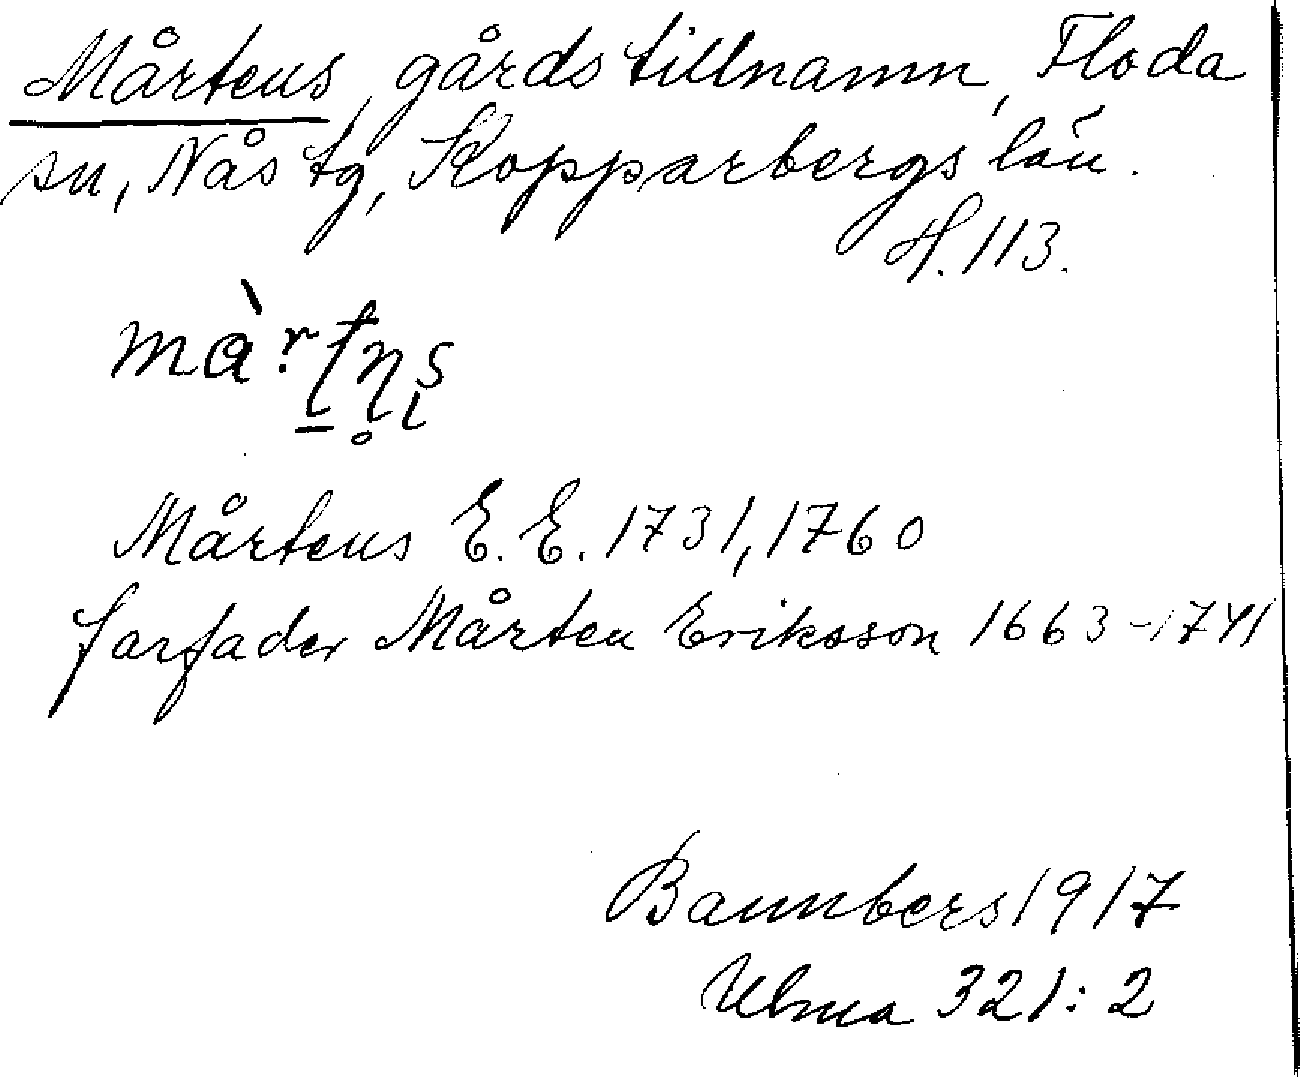 Mårtens, gårdstillnamn, Floda
sn, Nås tg, Kopparbergs län.
H. 113.
Mårtens E. E. 1731, 1760
farfader Mårten Eriksson 1663-1741
1917
Ulma 321:2